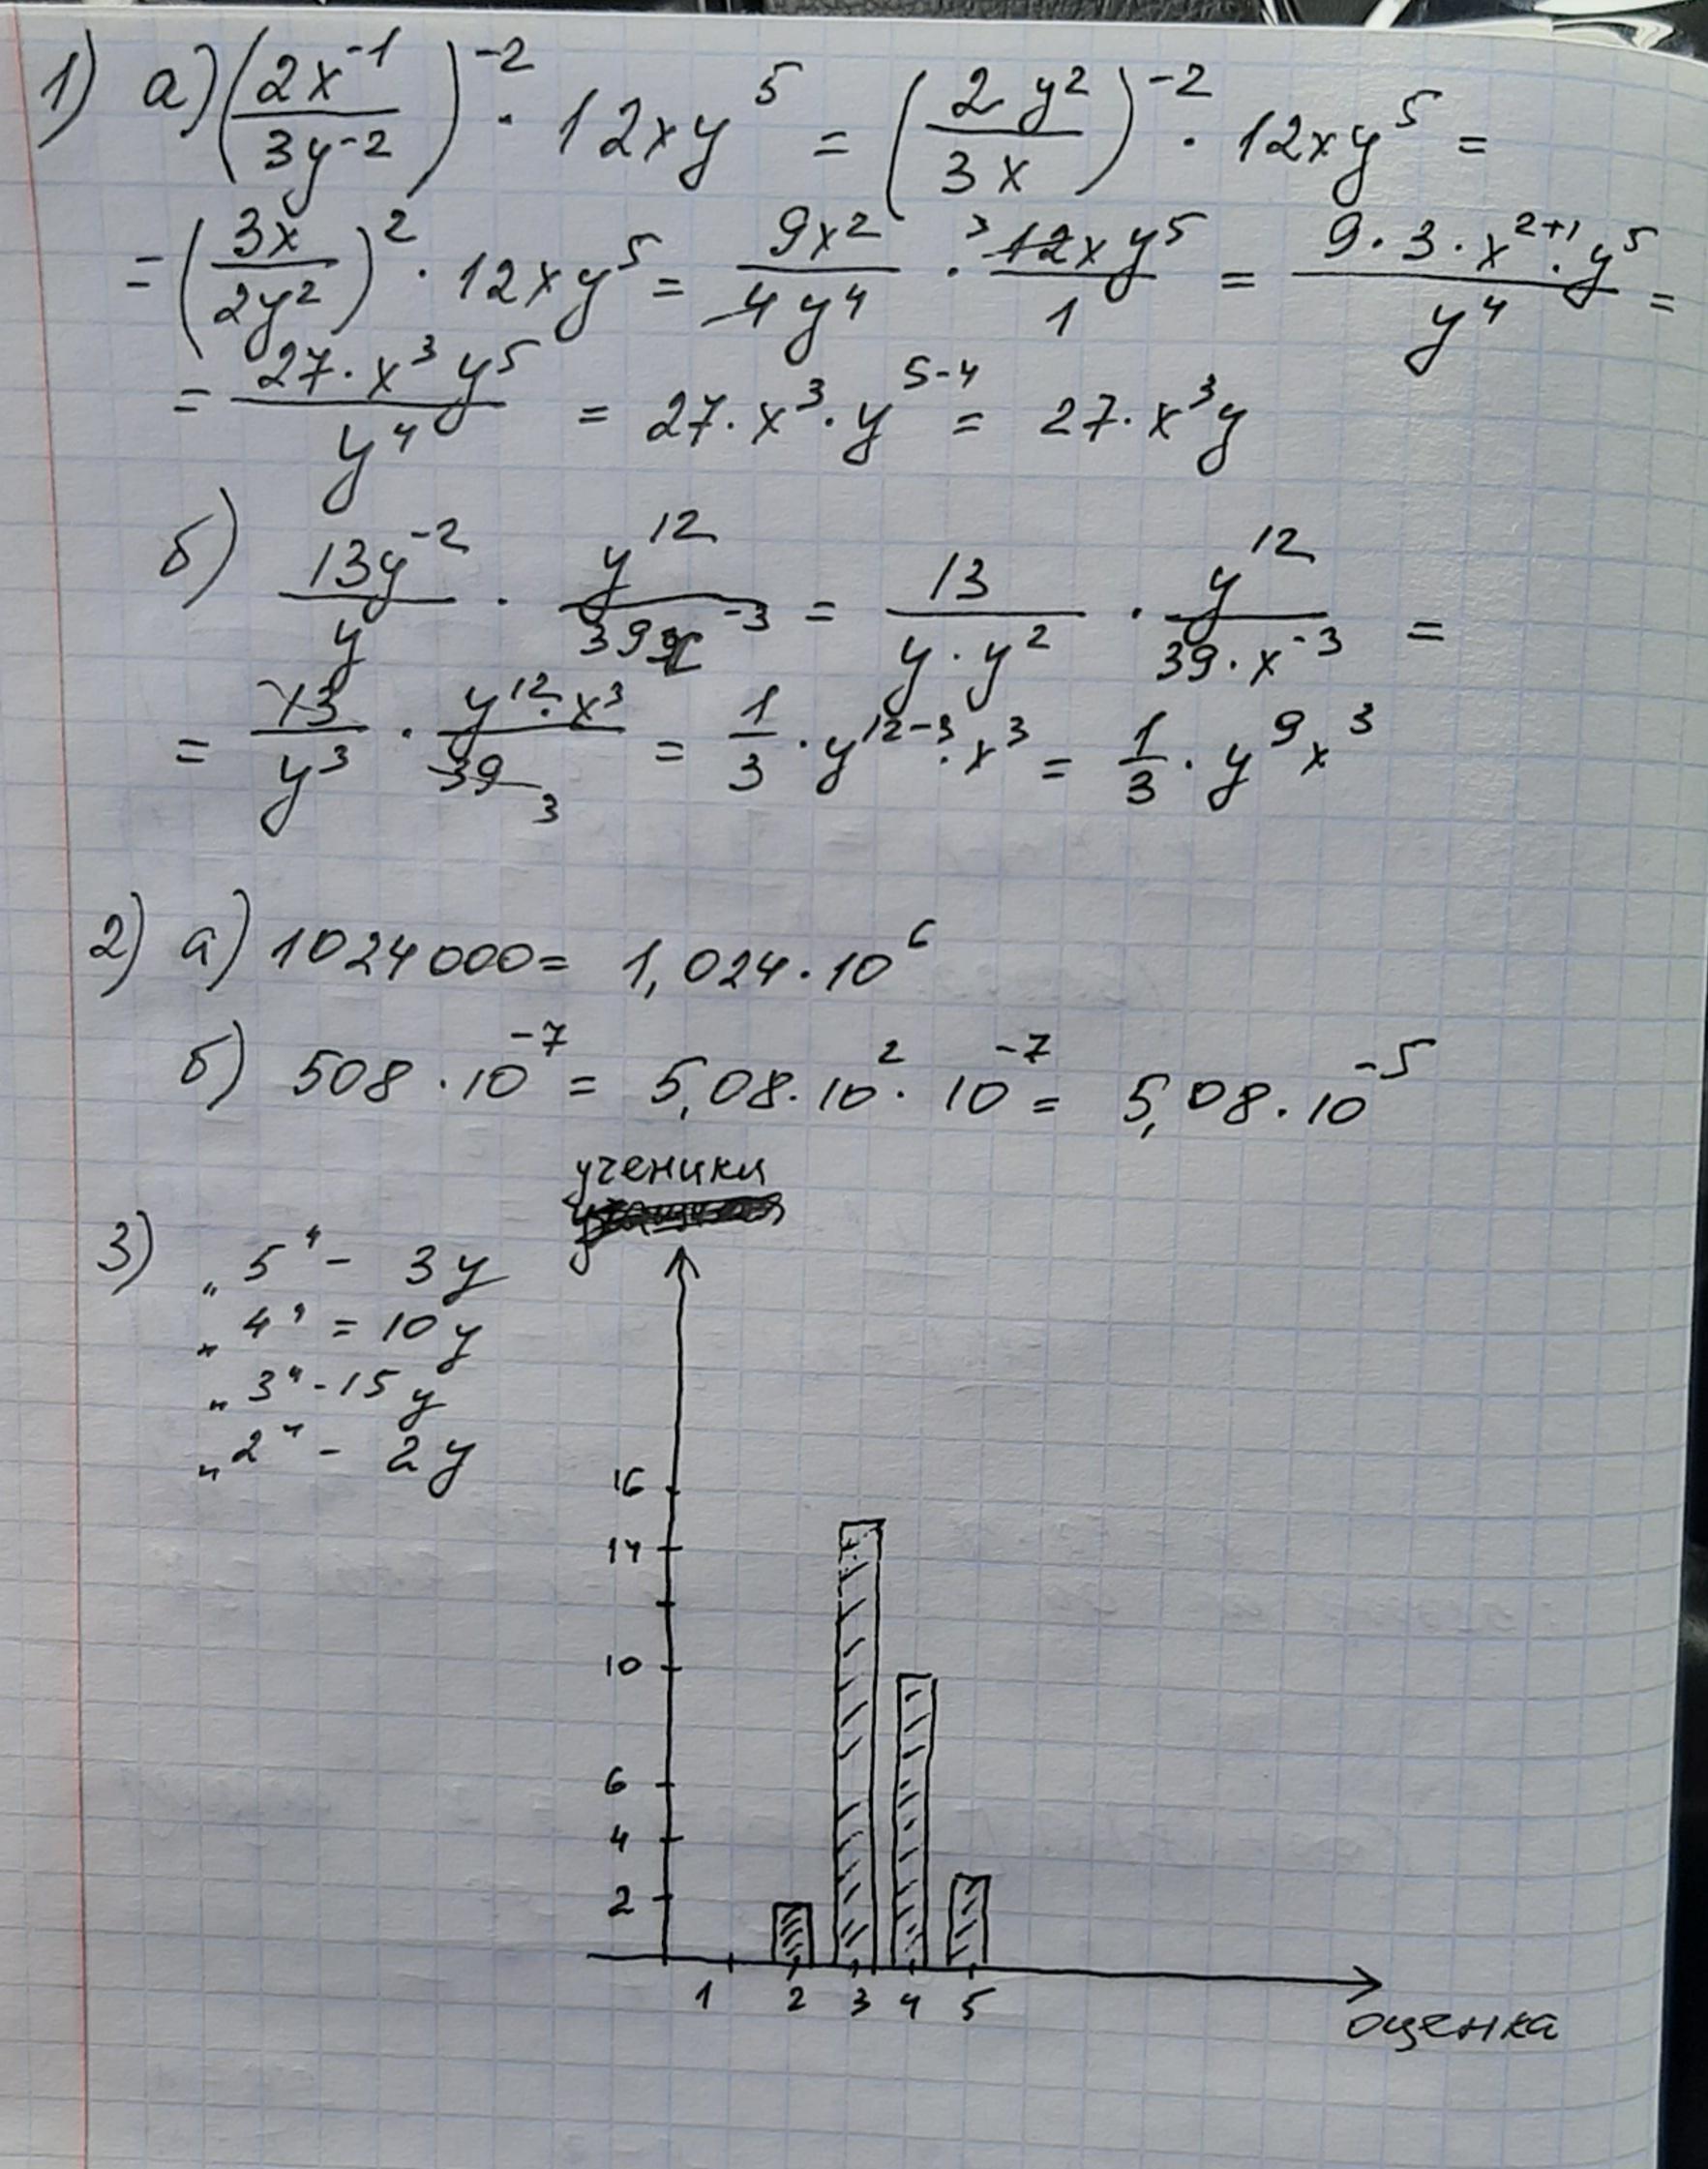 1) а) (2x⁻¹/3y⁻²)⁻² · 12xy⁵ = (2y²/3x)⁻² · 12xy⁵ =
= (3x/2y²)² · 12xy⁵ = 9x²/4y⁴ · ³12xy⁵/1 = 9·3·x²⁺¹·y⁵/y⁴ =
= 27·x³y⁵/y⁴ = 27·x³·y⁵⁻⁴ = 27·x³y
б) 13y⁻²/y · y¹²/39x⁻³ = 13/y·y² · y¹²/39·x⁻³ =
= 13/y³ · y¹²·x³/39 3 = 1/3 · y¹²⁻³·x³ = 1/3 · y⁹x³
2) а) 1024000 = 1,024·10⁶
б) 508·10⁻⁷ = 5,08·10²·10⁻⁷ = 5,08·10⁻⁵
ученики
3) „5" - 3у
„4" = 10у
„3" - 15у
„2" - 2у
16
14
10
6
4
2
1 2 3 4 5
оценка